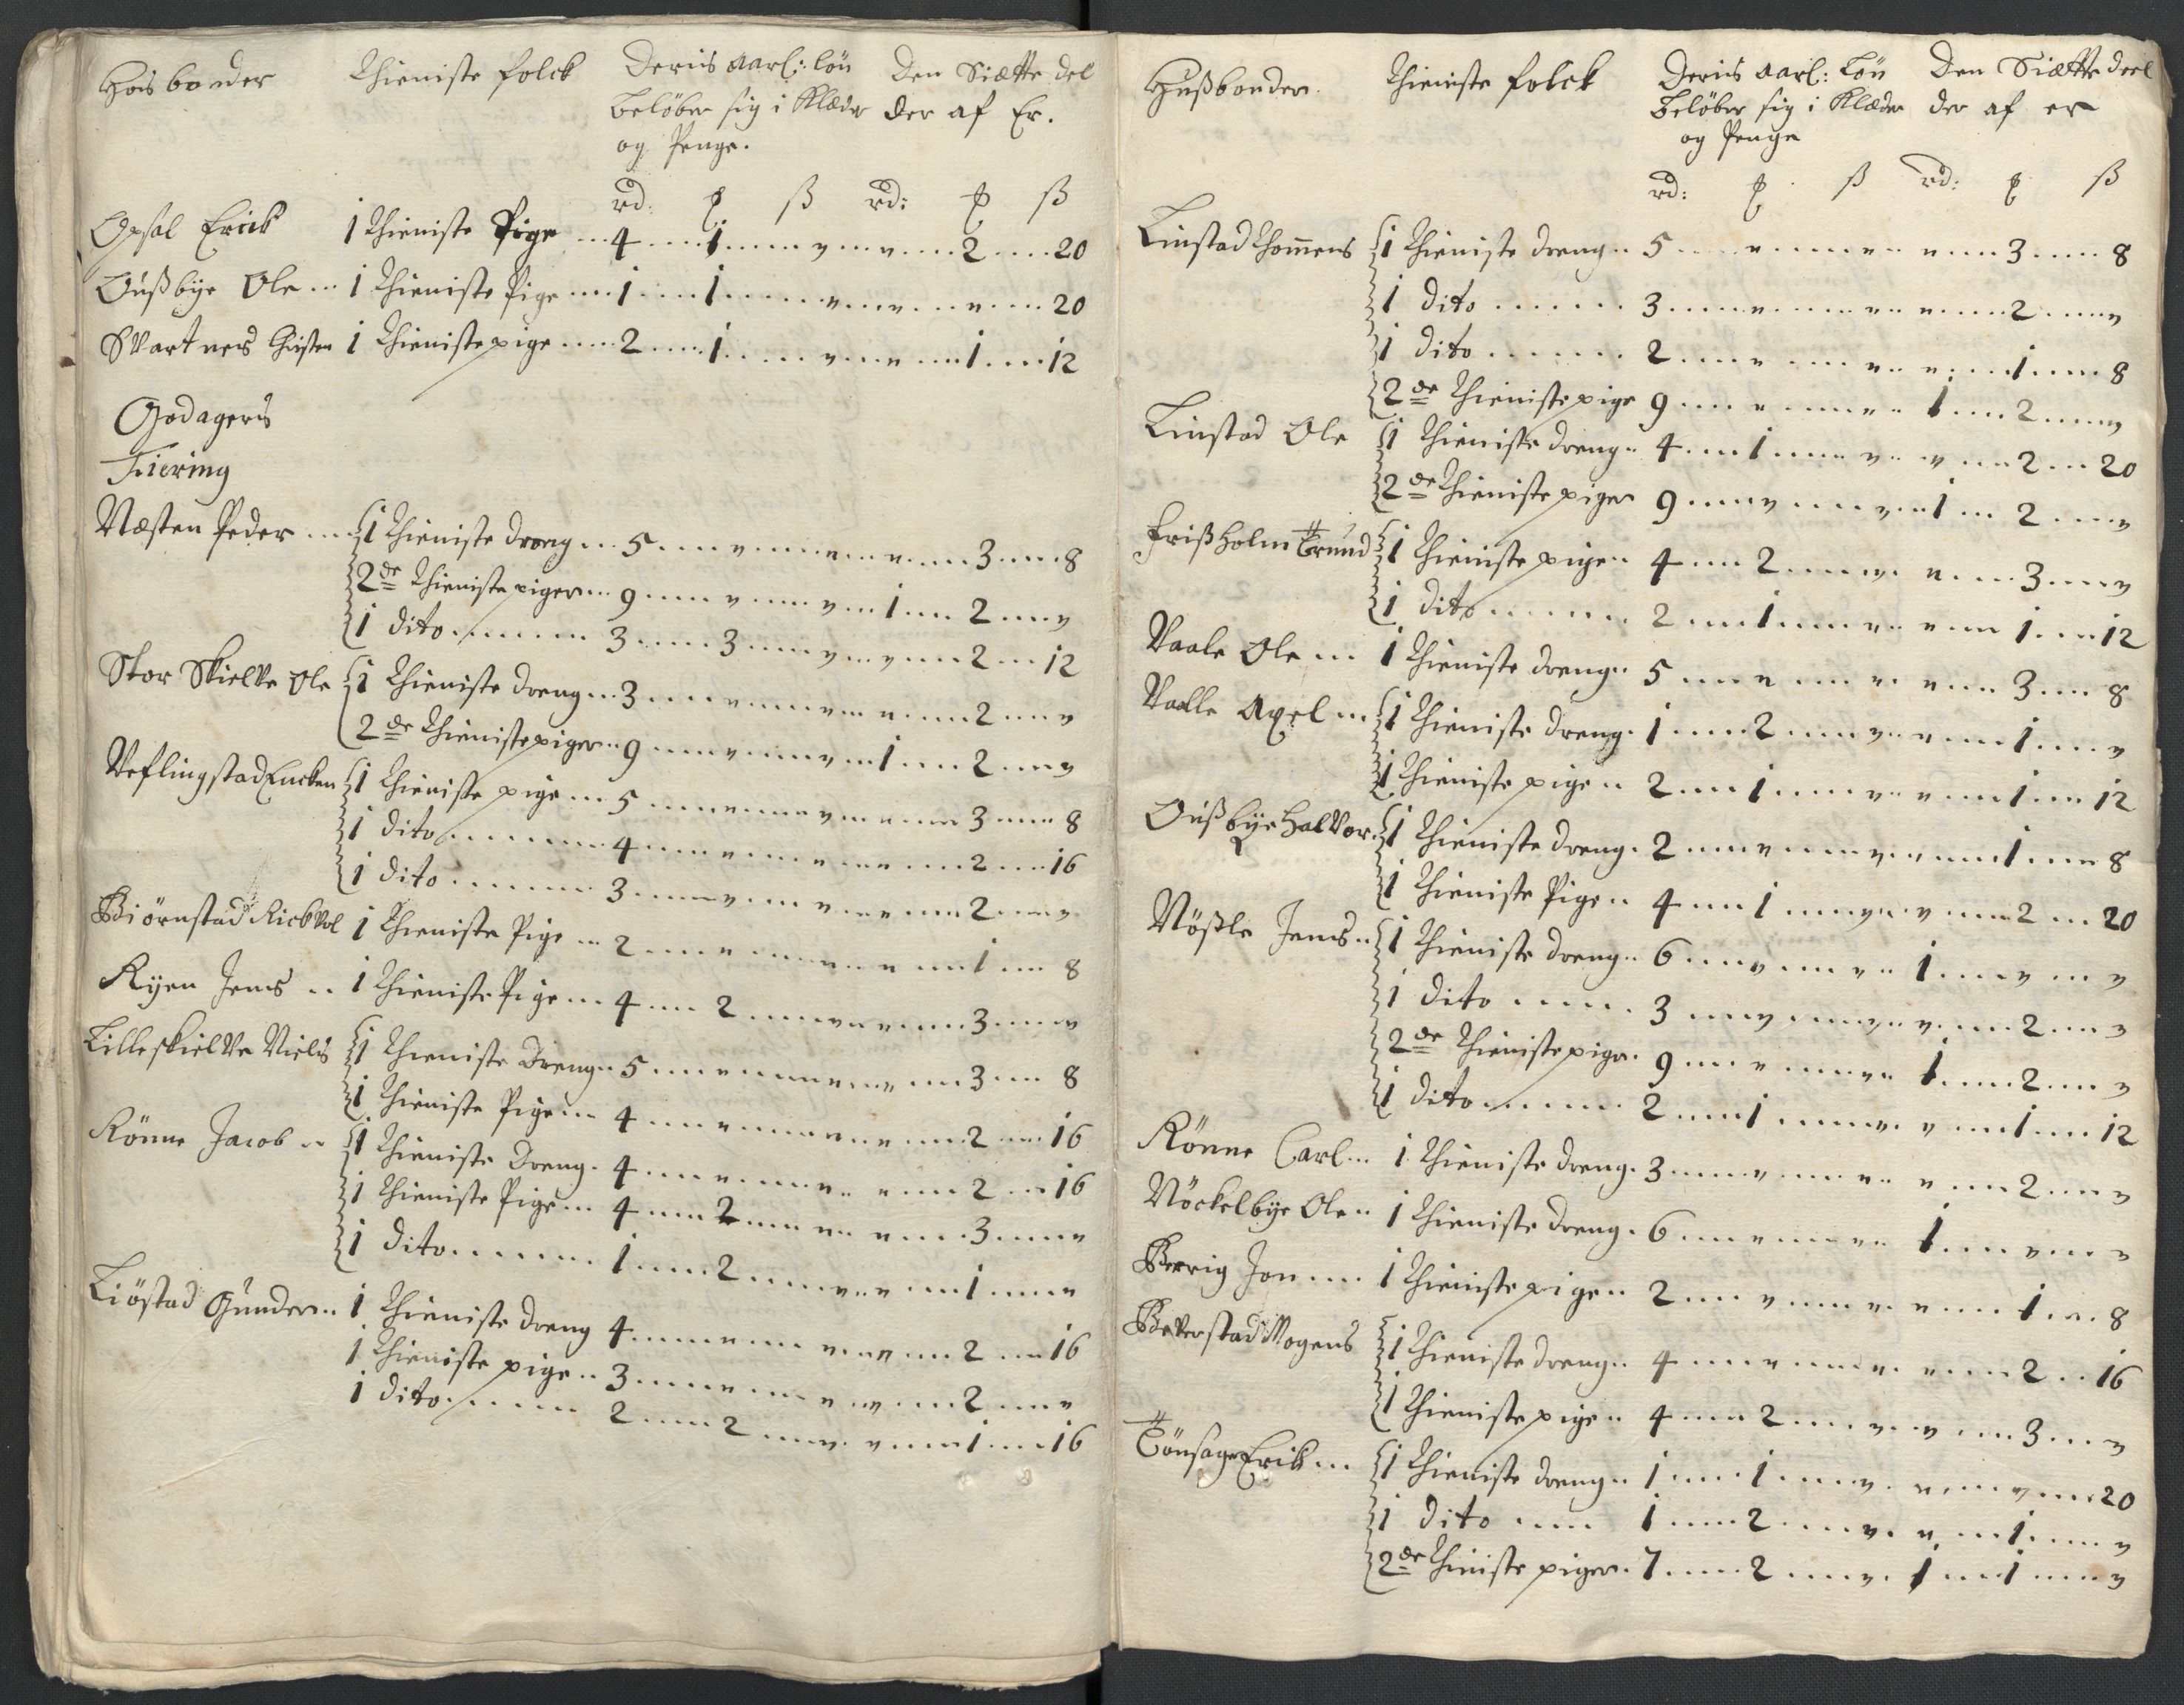 Hosbonder Thieniste folck Deris aarl: løn Den Siætte del
beløber sig i Klæder der af Er.
og Penge.
rd: ß rd: ß
Opsal Erick 1 Thieniste Pige 4 1 〃 〃 2 20
Oußbye Ole 1 Thieniste Pige 1 1 〃 〃 〃 20
Svartners Christen 1 Thienistepige 2 1 〃 〃 1 12
Godagers
Fiering
Næsten Peder 1 Thieniste dreng 5 〃 〃 〃 3 8
2de Thieniste piger 9 〃 〃 1 2 〃
1 dito 3 3 〃 〃 2 12
Stor Skielve Ole 1 Thieniste dreng 3 〃 〃 〃 2 〃
2de Thienistepiger 9 〃 〃 1 2 〃
Veflingstad Encken 1 Thieniste pige 5 〃 〃 〃 3 8
1 dito 4 〃 〃 〃 2 16
1 dito 3 〃 〃 〃 2 〃
Biørnstad Rickvol 1 Thieniste Pige 2 〃 〃 〃 1 8
Ryen Jens 1 Thieniste Pige 4 2 〃 〃 3 〃
Lilleskielve Niels 1 Thieniste Dreng 5 〃 〃 〃 3 8
1 Thieniste Pige 4 〃 〃 〃 2 16
Rönne Jacob 1 Thieniste Dreng 4 〃 〃 〃 2 16
1 Thieniste Pige 4 2 〃 〃 3 〃
1 dito 1 2 〃 〃 1 〃
Liöstad Gunder 1 Thieniste dreng 4 〃 〃 〃 2 16
1 Thieniste pige 3 〃 〃 〃 2 〃
1 dito 2 2 〃 〃 1 16
Hußbonder Thieniste folck Deris aarl: Løn Den Siætte deel
beløber sig i Klæder der af er
og Penge
rd: ß rd: ß
Linstad Thommes 1 Thieniste dreng 5 〃 〃 〃 3 8
1 dito 3 〃 〃 〃 2 〃
1 dito 2 〃 〃 〃 1 8
2de Thienistepige 9 〃 〃 1 2 〃
Linstad Ole 1 Thieniste dreng 4 1 〃 〃 2 20
2de Thieniste piger 9 〃 〃 1 2 〃
Frißholm Trund 1 Thieniste pige 4 2 〃 〃 3 〃
1 dito 2 1 〃 〃 1 12
Vaale Ole 1 Thieniste dreng 5 〃 〃 〃 3 8
Vaalle Axel 1 Thieniste dreng 1 2 〃 〃 1 〃
1 Thieniste pige 2 1 〃 〃 1 12
Oußbye Halvor 1 Thieniste dreng 2 〃 〃 〃 1 8
1 Thieniste Pige 4 1 〃 〃 2 20
Nößle Jens 1 Thieniste dreng 6 〃 〃 1 〃 〃
1 dito 3 〃 〃 〃 2 〃
2de Thienistepiger 9 〃 〃 1 2 〃
1 dito 2 1 〃 〃 1 12
Rönne Carl 1 Thieniste dreng 3 〃 〃 〃 2 〃
Nöckelbye Ole 1 Thieniste dreng 6 〃 〃 1 〃 〃
Berrig Jon 1 Thienistepige 2 〃 〃 〃 1 8
Beverstad Mogens 1 Thieniste dreng 4 〃 〃 〃 2 16
1 Thienistepige 4 2 〃 〃 3 〃
Tönsage Erik 1 Thieniste dreng 1 1 〃 〃 〃 20
1 dito 1 2 〃 〃 1 〃
2de Thieniste piger 7 2 〃 1 1 〃